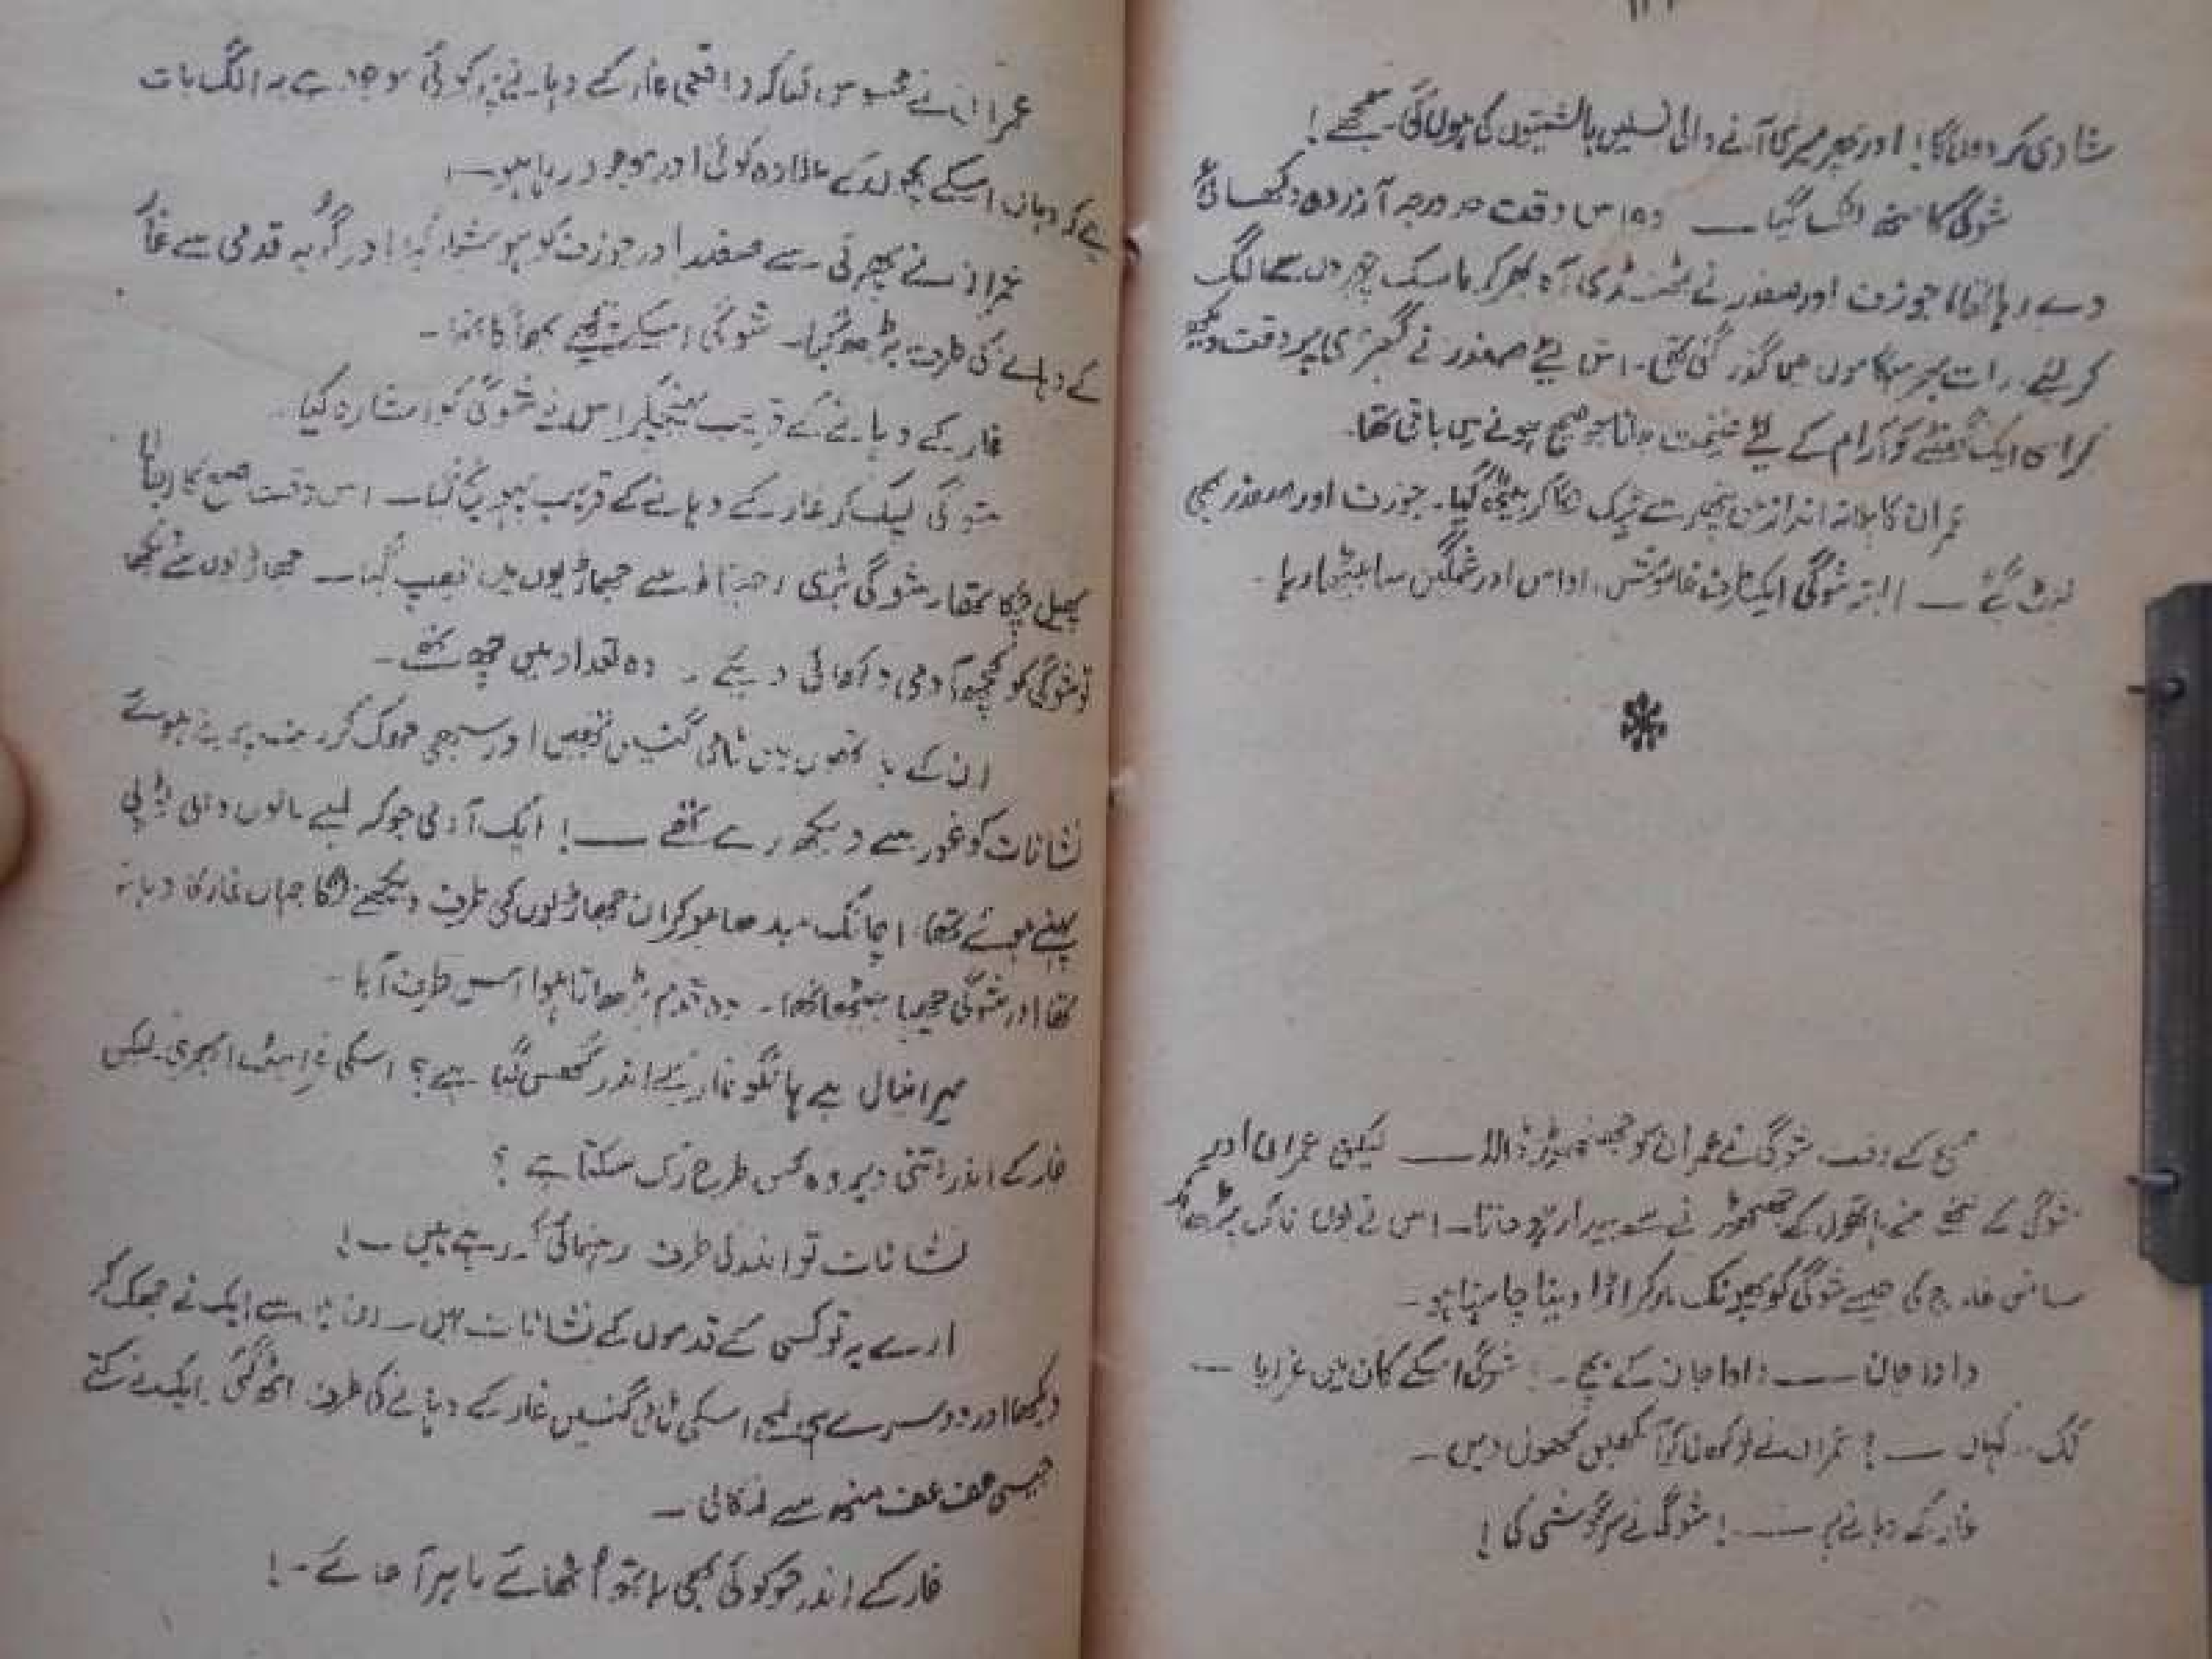 شادی کر دوں گا! اور پھر میری آنے والی نسلیں بالشتیوں کی ہوں گی۔ سمجھے!
شوگی کا منہ لٹک گیا ـــ وہ اس وقت حد درجہ آزردہ دکھائی
دے رہا تھا! جوزف اور صفدر نے ٹھنڈی آہ بھر کر ماسک چہروں سے الگ
کر لیئے۔ رات بھر ہنگاموں میں گذر گئی تھی۔ اس لیے صفدر نے گھڑی پر وقت دیکھ
کر اسی ایک گھنٹے کو آرام کے لئے غنیمت جانا جو صبح ہونے میں باقی تھا۔
عمران کاہلانہ انداز میں پتھر سے ٹیک لگا کر بیٹھ گیا۔ جوزف اور صفدر بھی
لوٹ گئے ـــ البتہ شوگی ایک طرف خاموش، اداس اور غمگین سا بیٹھا رہا۔
صبح کے وقت شوگی نے عمران کو جھنجھوڑ ڈالا ـــ لیکن عمران اور
شوگی کے ننھے منے ہاتھوں کے جھنجھوڑنے سے بیدار ہو جاتا۔ اس نے یوں ناک چڑھا کر
سانس خارج کی جیسے شوگی کو پھونک مار کر اڑا دینا چاہتا ہو۔
دادا جان ـــ دادا جان کے بچے۔ شوگی اسکے کان میں غرایا ـــ
کک۔۔ کہاں ـــ؟ عمران نے بوکھلا کر آنکھیں کھول دیں۔
غار کے دہانے پر ـــ! شوگی نے سرگوشی کی!
عمران نے محسوس کیا کہ واقعی غار کے دہانے پر کوئی موجود ہے یہ الگ بات
ہے کہ وہاں اسکے بچوں کے علاوہ کوئی اور موجود رہا ہو۔!
عمران نے پھرتی سے صفدر اور جوزف کو ہوشیار کیا! اور آہستہ قدمی سے غار
کے دہانے کی طرف بڑھ گیا۔ شوگی اسکے پیچھے بھاگا تھا۔
غار کے دہانے کے قریب پہنچکر اس نے شوگی کو اشارہ کیا۔
شوگی لپک کر غار کے دہانے کے قریب پہونچ گیا۔ اس وقت صبح کا اجالا
پھیل چکا تھا۔ شوگی بڑی احتیاط سے جھاڑیوں میں چھپ گیا۔ جھاڑیوں سے دیکھا
تو شوگی کو کچھ آدمی دکھائی دیئے۔ وہ تعداد میں چھ تھے۔
ان کے ہاتھوں میں ٹامی گنیں تھیں اور سبھی جھک کر زمین پر بنے ہوئے
نشانات کو غور سے دیکھ رہے تھے ـــ! ایک آدمی جو کہ لمبے بالوں والی ٹوپی
پہنے ہوئے تھا، اچانک سیدھا ہو کر ان جھاڑیوں کی طرف دیکھنے لگا جہاں غار کا دہانہ
تھا اور شوگی چھپا بیٹھا تھا۔ وہ قدم بڑھاتا ہوا اسی طرف آیا۔
میرا خیال ہے ہانگو غار کے اندر گھس گیا ہے؟ اسکی غراہٹ ابھری۔ لیکن
غار کے اندر اتنی دیر وہ کس طرح رک سکتا ہے؟
نشانات تو اندر کی طرف رہنمائی کر رہے ہیں۔!
ارے یہ تو کسی کے قدموں کے نشانات ہیں۔ ان میں سے ایک نے جھک کر
دیکھا اور دوسرے ہی لمحے اسکی ٹامی گنیں غار کے دہانے کی طرف اٹھ گئی۔ ایک نے کتے
جیسی عف عف منہ سے نکالی۔
غار کے اندر جو کوئی بھی ہاتھ اٹھائے باہر آ جائے۔!